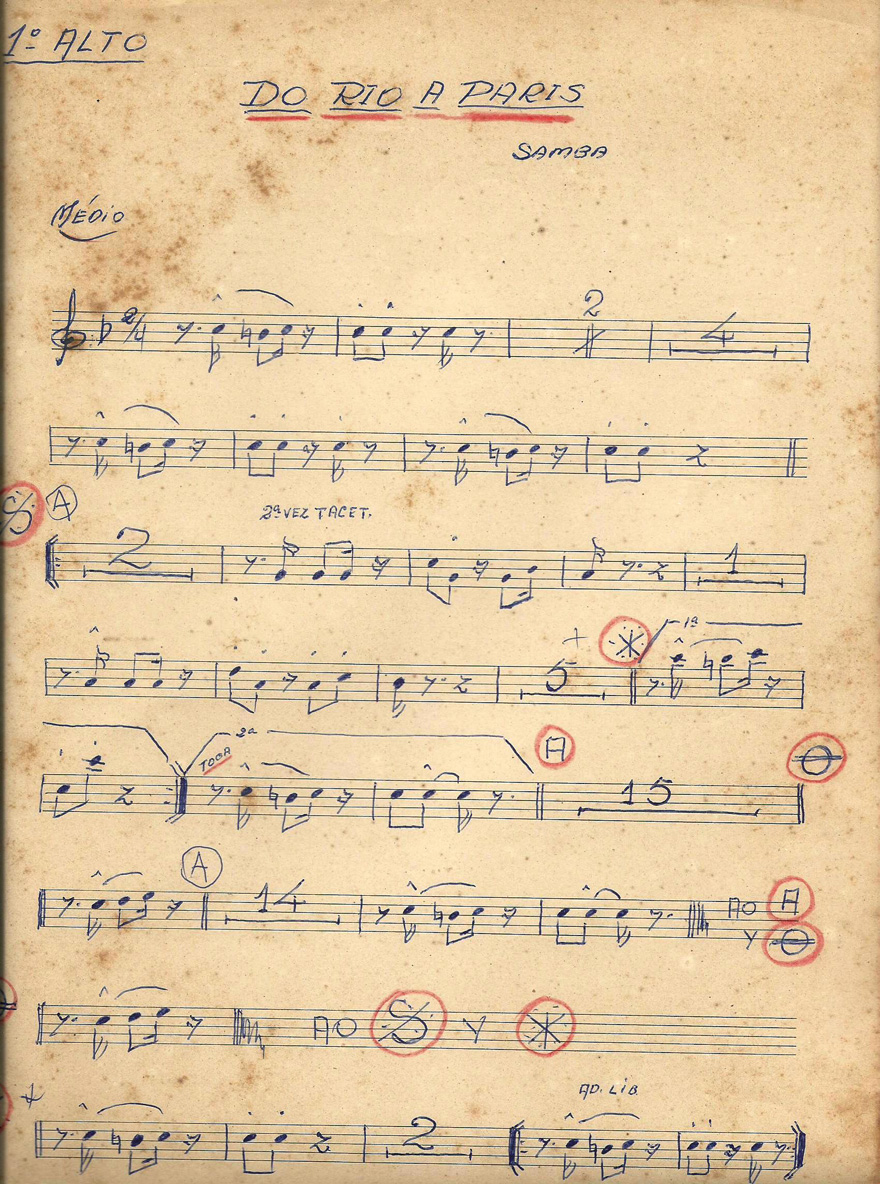 1º ALTO
DO RIO A PARIS
SAMBA
MÉDIO
2/4
2
4
A
2ª VEZ TACET.
2
1
5
1ª
2ª
TOCA
A
15
A
14
AO A
Y
AO Y
AD. LIB
2